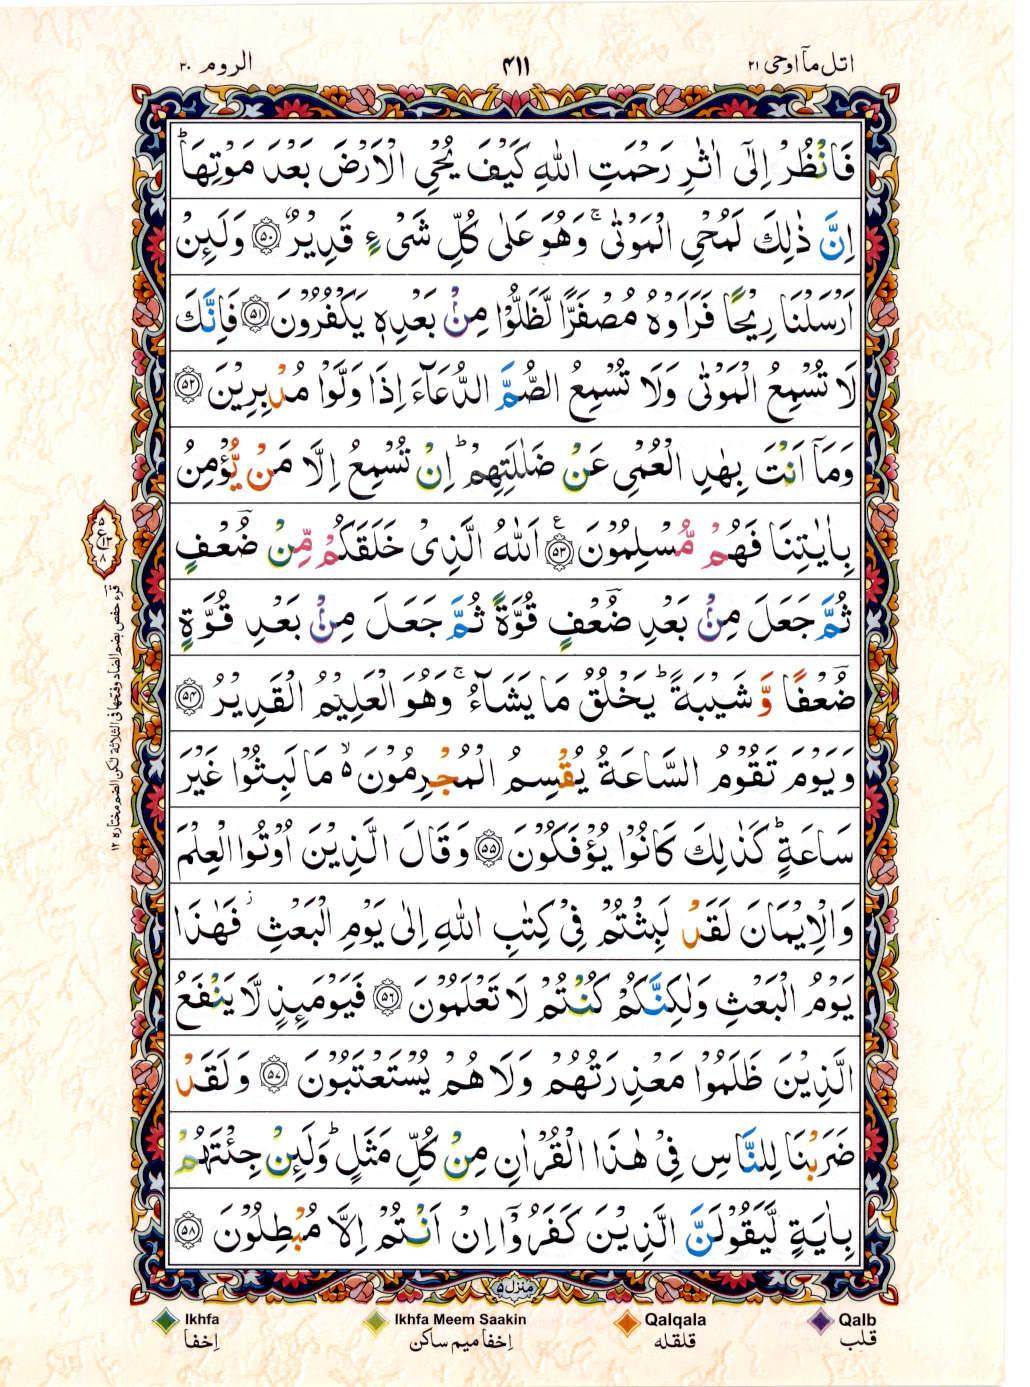 اتل مآ اوحی ۲۱
۴۱۱
الروم ۳۰
فَانْظُرْ اِلٰۤی اٰثٰرِ رَحْمَتِ اللّٰهِ كَیْفَ یُحْیِ الْاَرْضَ بَعْدَ مَوْتِهَا ؕ
اِنَّ ذٰلِكَ لَمُحْیِ الْمَوْتٰی ۚ وَهُوَ عَلٰی كُلِّ شَیْءٍ قَدِیْرٌ ﴿۵۰﴾ وَلَىِٕنْ
اَرْسَلْنَا رِیْحًا فَرَاَوْهُ مُصْفَرًّا لَّظَلُّوْا مِنْۢ بَعْدِهٖ یَكْفُرُوْنَ ﴿۵۱﴾ فَاِنَّكَ
لَا تُسْمِعُ الْمَوْتٰی وَلَا تُسْمِعُ الصُّمَّ الدُّعَآءَ اِذَا وَلَّوْا مُدْبِرِیْنَ ﴿۵۲﴾
وَمَاۤ اَنْتَ بِهٰدِ الْعُمْیِ عَنْ ضَلٰلَتِهِمْ ؕ اِنْ تُسْمِعُ اِلَّا مَنْ یُّؤْمِنُ
بِاٰیٰتِنَا فَهُمْ مُّسْلِمُوْنَ ﴿۵۳﴾ اَللّٰهُ الَّذِیْ خَلَقَكُمْ مِّنْ ضُؔعْفٍ
ثُمَّ جَعَلَ مِنْۢ بَعْدِ ضُؔعْفٍ قُوَّةً ثُمَّ جَعَلَ مِنْۢ بَعْدِ قُوَّةٍ
ضُؔعْفًا وَّ شَیْبَةً ؕ یَخْلُقُ مَا یَشَآءُ ۚ وَهُوَ الْعَلِیْمُ الْقَدِیْرُ ﴿۵۴﴾
وَیَوْمَ تَقُوْمُ السَّاعَةُ یُقْسِمُ الْمُجْرِمُوْنَ ۙ۬ مَا لَبِثُوْا غَیْرَ
سَاعَةٍ ؕ كَذٰلِكَ كَانُوْا یُؤْفَكُوْنَ ﴿۵۵﴾ وَقَالَ الَّذِیْنَ اُوْتُوا الْعِلْمَ
وَالْاِیْمَانَ لَقَدْ لَبِثْتُمْ فِیْ كِتٰبِ اللّٰهِ اِلٰی یَوْمِ الْبَعْثِ ؗ فَهٰذَا
یَوْمُ الْبَعْثِ وَلٰكِنَّكُمْ كُنْتُمْ لَا تَعْلَمُوْنَ ﴿۵۶﴾ فَیَوْمَىِٕذٍ لَّا یَنْفَعُ
الَّذِیْنَ ظَلَمُوْا مَعْذِرَتُهُمْ وَلَا هُمْ یُسْتَعْتَبُوْنَ ﴿۵۷﴾ وَلَقَدْ
ضَرَبْنَا لِلنَّاسِ فِیْ هٰذَا الْقُرْاٰنِ مِنْ كُلِّ مَثَلٍ ؕ وَلَىِٕنْ جِئْتَهُمْ
بِاٰیَةٍ لَّیَقُوْلَنَّ الَّذِیْنَ كَفَرُوْۤا اِنْ اَنْتُمْ اِلَّا مُبْطِلُوْنَ ﴿۵۸﴾
قرء حفص بضم الضاد وفتحها فی الثلاثة لكن الضم مختاره ۱۲
منزل ۵
Ikhfa
اِخفا
Ikhfa Meem Saakin
اِخفا میم ساکن
Qalqala
قلقله
Qalb
قلب